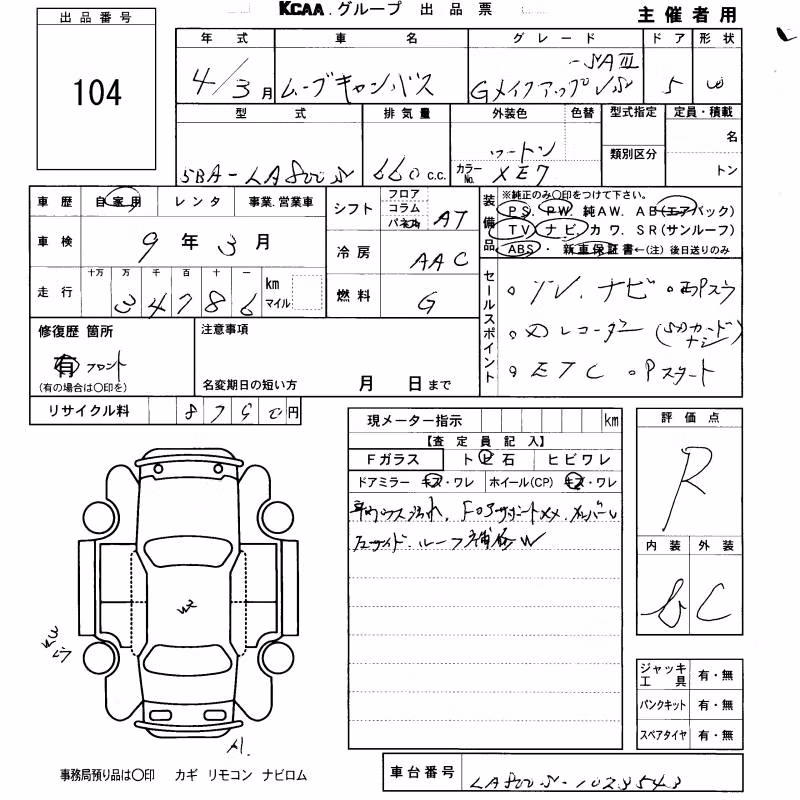 KCAA.グループ 出品票
主催者用
出品番号
104
年式 車名 グレード ドア 形状
4/3月 ムーブキャンバス Gメイクアップ SAⅢ 5 W
型式 排気量 外装色 色替 型式指定 定員・積載
名
類別区分
5BA-LA800S 660c.c. ツートン カラーNo. XE7 トン
車歴 自家用 レンタ 事業.営業車
シフト フロア コラム AT
車検 9年3月
冷房 AAC
走行 十万 万 千 百 十 一 km マイル
34786
燃料 G
装備品 ※純正のみ○印をつけて下さい。
PS. PW. 純AW. AB(エアバック)
TV ナビ. カワ. SR(サンルーフ)
ABS ・ 新車保証書←(注) 後日送りのみ
セールスポイント
。TV.ナビ 。両Pスラ
。Dレコーダー (SDカードナシ)
。ETC 。Pスタート
修復歴 箇所 注意事項
有 フロント
(有の場合は○印を)
名変期日の短い方 月 日まで
リサイクル料 円
現メーター指示 km
【査定員記入】
Fガラス トビ石 ヒビワレ
ドアミラー キズ・ワレ ホイール(CP) キズ・ワレ
評価点
R
内装 外装
C
W2
A1.
ジャッキ工具 有・無
パンクキット 有・無
スペアタイヤ 有・無
事務局預り品は○印 カギ リモコン ナビロム
車台番号 LA800S-1023543